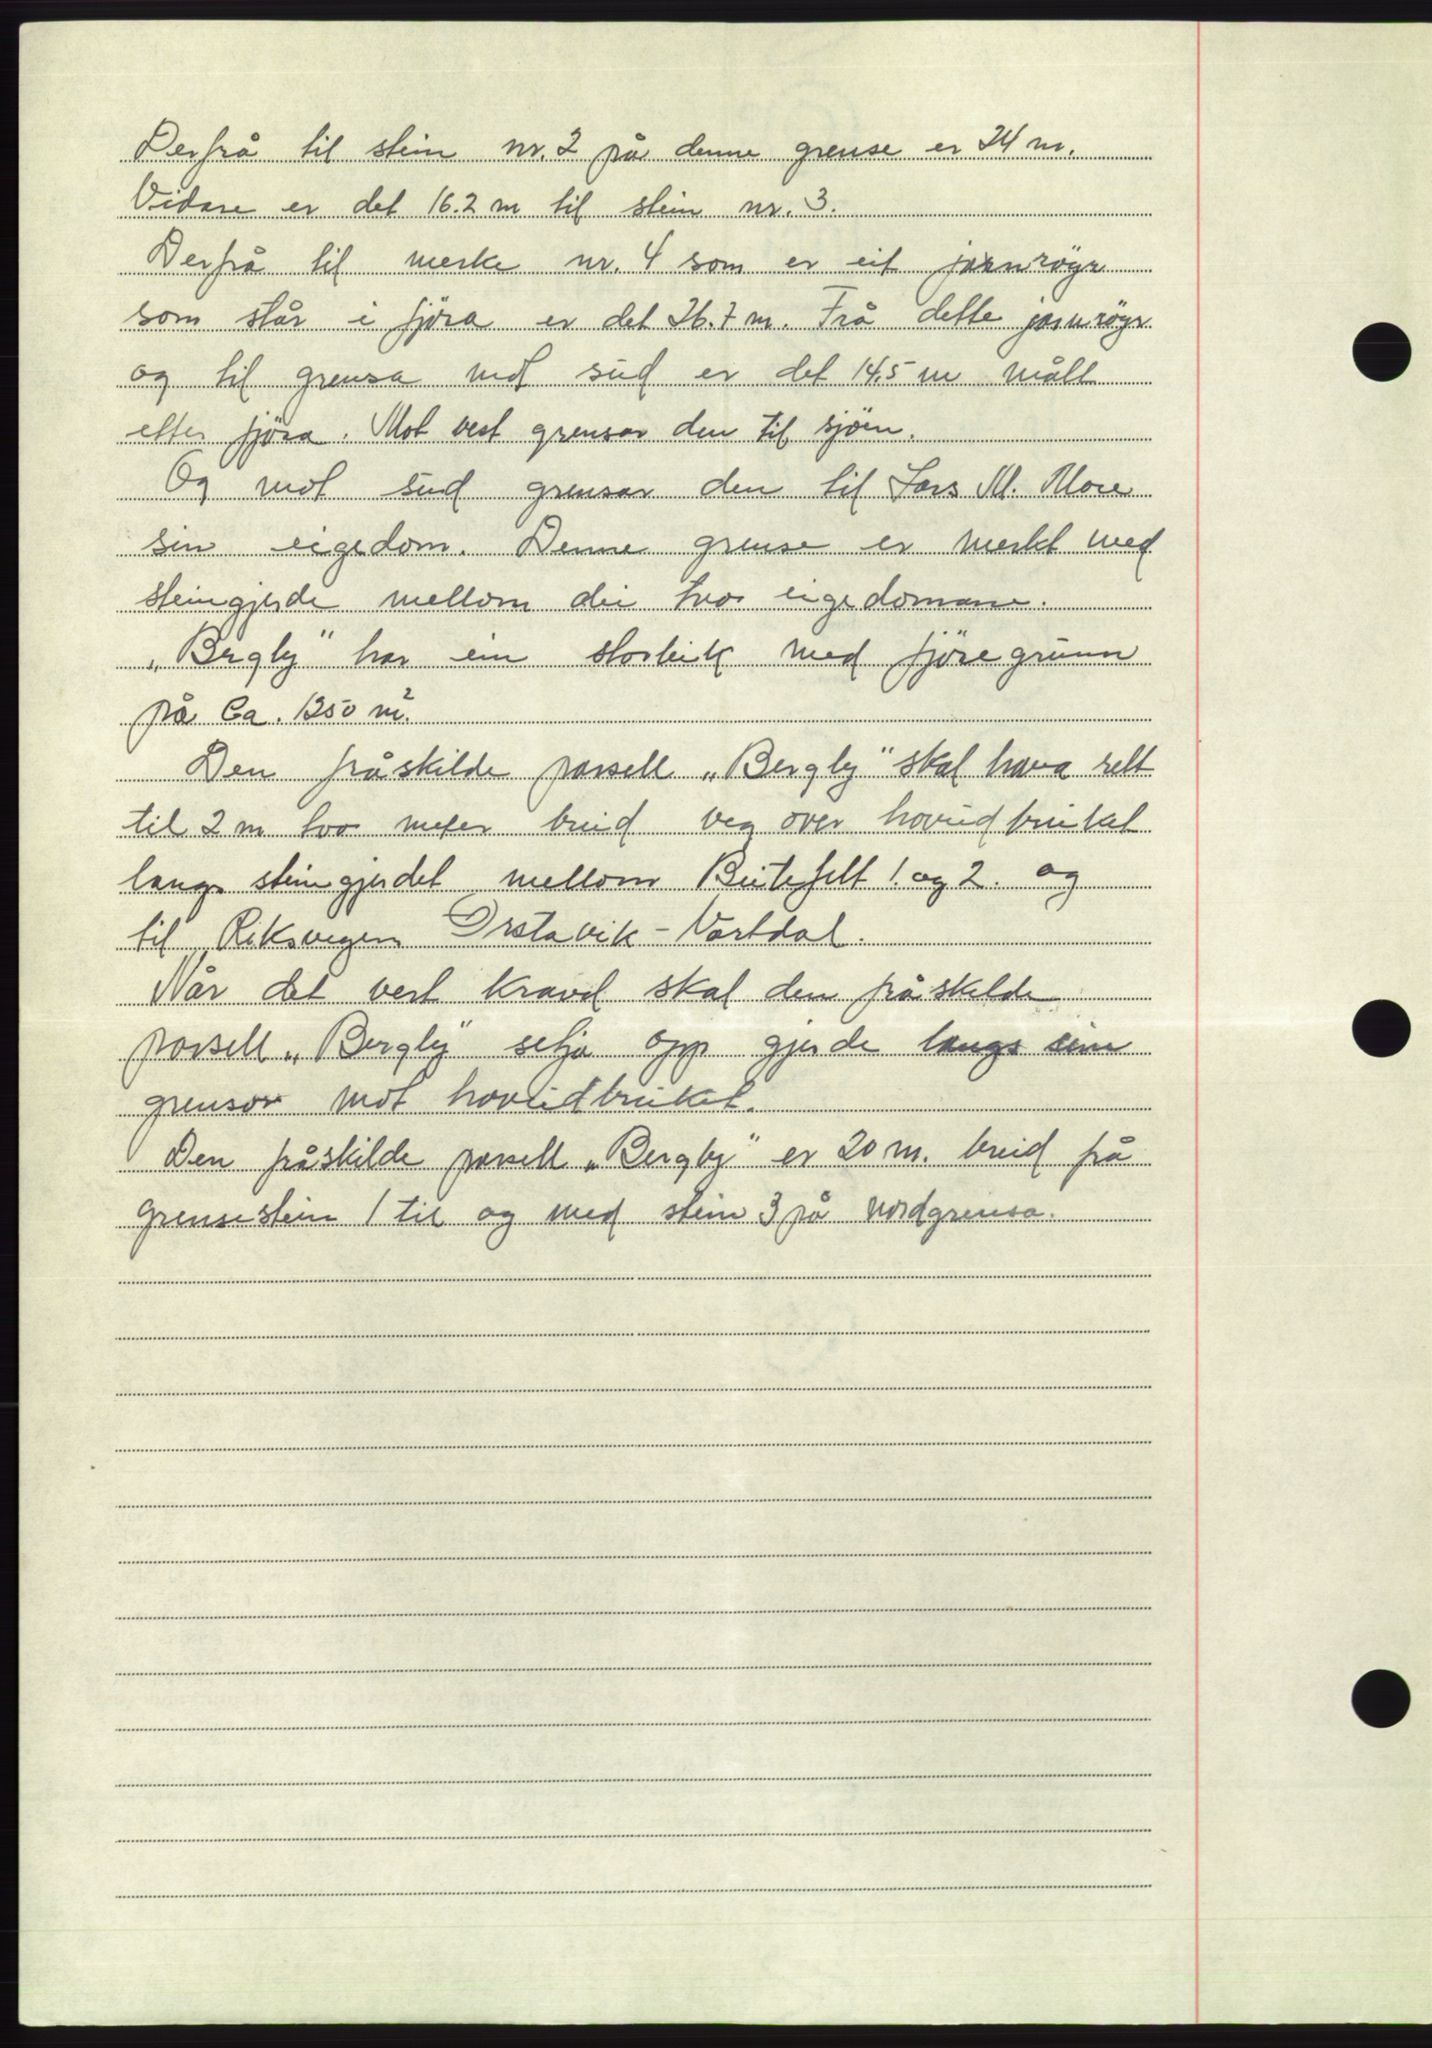 Derfrå til stein nr. 2 på denne grense er 24 m.
Vidare er det 16.2 m til stein nr. 3.
Derfrå til merke nr. 4 som er eit jarnröyr
som står i fjöra er det 26.7 m. Frå dette jarnröyr
og til grensa mot süd er det 14.5 m målt
etter fjöra. Mot vest grensar den til sjöen.
Og mot süd grensar den til Lars M. More
sin eigedom. Denne grense er merkt med
steingjerde mellom dei tvo eigedomane.
„Bergly" har ein storleik med fjöregrunn
på Ca. 1250 m².
Den fråskilde parsell „Bergly" skal hava rett
til 2 m tvo meter breid veg over hovüdbruket
langs steingjerdet mellom Beitefelt 1. og 2. og
til Riksvegen Örstavik - Vartdal.
Når det vert kravd skal den fråskilde
parsell „Bergly" setja opp gjerde langs sine
grensor mot hovüdbruket.
Den fråskilde parsell „Bergly" er 20 m. breid frå
grensestein 1 til og med stein 3 på nordgrensa.